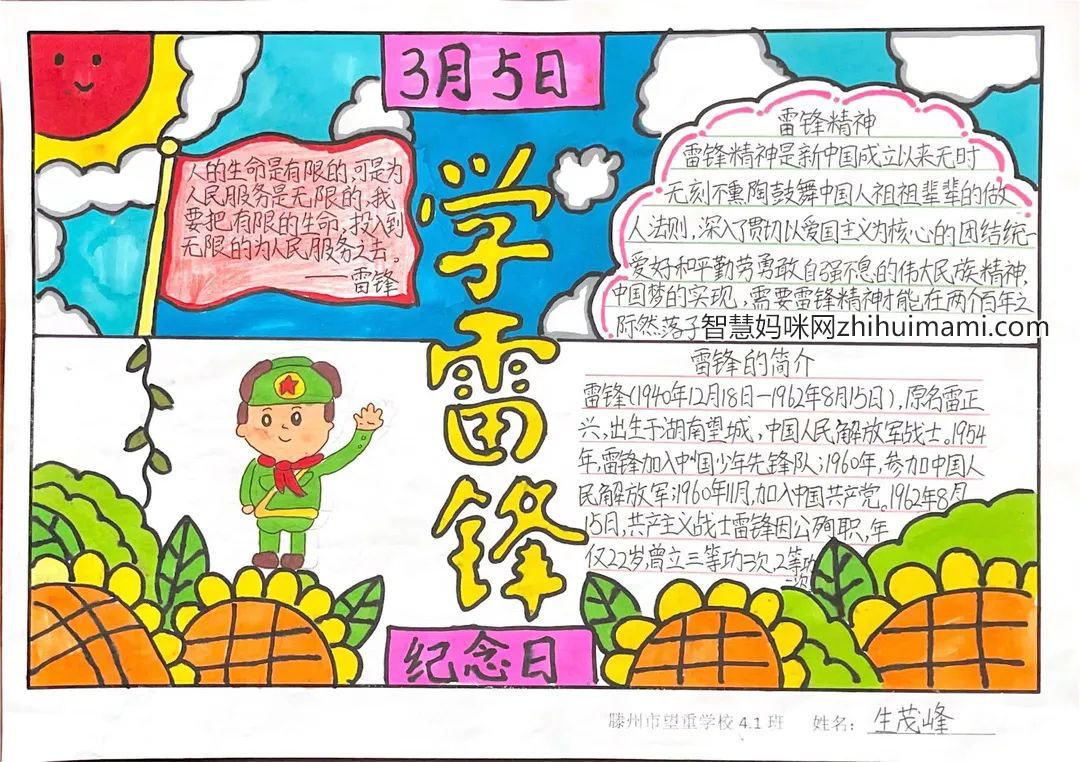 3月5日
学雷锋
纪念日
人的生命是有限的,可是为
人民服务是无限的,我
要把有限的生命,投入到
无限的为人民服务之去。
——雷锋
雷锋精神
雷锋精神是新中国成立以来无时
无刻不熏陶鼓舞中国人祖祖辈辈的做
人法则,深入了贯切以爱国主义为核心的团结统一
爱好和平勤劳勇敢自强不息的伟大民族精神,
中国梦的实现,需要雷锋精神才能,在两个百年之
际然落子
智慧妈咪网zhihuimami.com
雷锋的简介
雷锋(1940年12月18日—1962年8月15日),原名雷正
兴,出生于湖南望城,中国人民解放军战士。1954
年,雷锋加入中国少年先锋队;1960年,参加中国人
民解放军;1960年11月,加入中国共产党。1962年8月
15日,共产主义战士雷锋因公殉职,年
仅22岁,曾立三等功3次,2等功
一次
滕州市望重学校4.1班 姓名:生茂峰